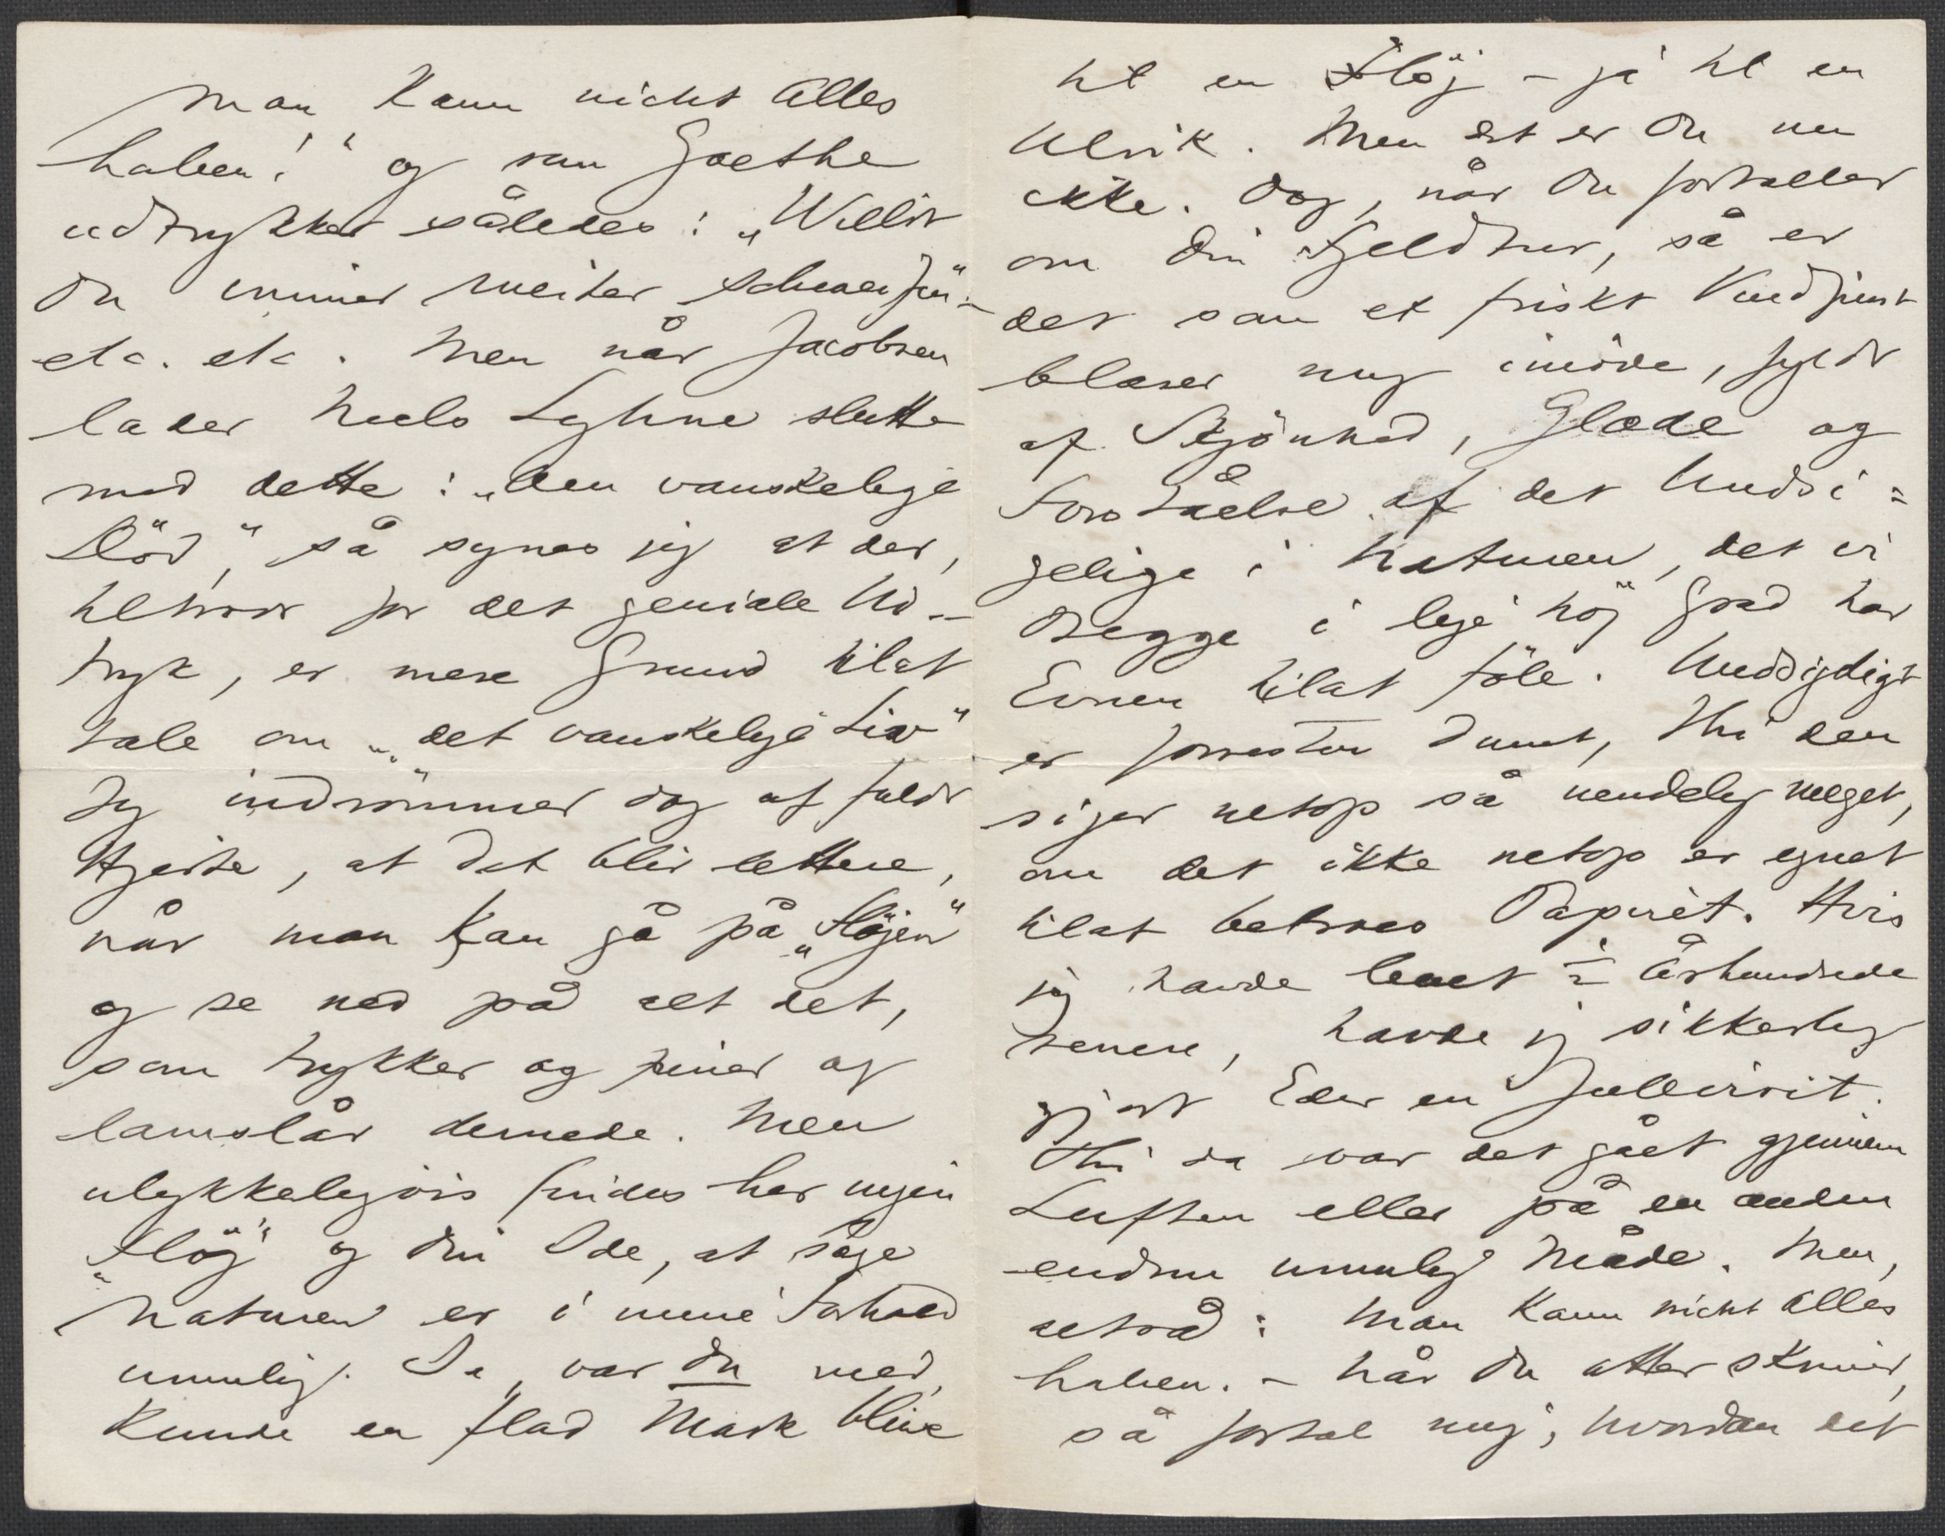 Man kann nicht Alles
haben!" og som Goethe
udtrykker således: "Willst
Du immer weiter schweifen"
etc. etc. Men når Jacobsen
lader Niels Lyhne slutte
med dette: "den vanskelige
Död", så synes jeg at der,
tiltrods for det geniale Ud-
tryk, er mere Grund tilat
tale om "det vanskelige Liv"
Jeg indrömmer dog af fuldt
Hjerte, at det blir lettere,
når man kan gå på "Höjen"
og se ned på alt det,
som trykker og piner og
lamslår dernede. Men
ulykkeligvis findes her ingen
"Höj" og din Ide, at söge
Naturen er i mine Forhold
umulig. Ja, var Du med,
kunde en flad Mark blive
til en Höj – ja til en
Ulrik. Men det er Du nu
ikke. Dog, når Du fortæller
om Din Fjeldtur, så er
det som et friskt Vindpust
blæser mig imöde, fyldt
af Skjönhed, Glæde og
Forståelse af det Uudsi=
gelige i Naturen, det vi
Begge i lige höj Grad har
Evnen tilat föle.
er forresten dumt, thi den
siger netop så uendelig meget,
om det ikke netop er egnet
tilat betroes Papiret. Hvis
jeg havde levet ½ Århundrede
senere, havde jeg sikkerlig
gjort Eder en Julevisit.
Thi da var det gået gjennem
Luften eller på en anden
endnu umulig Måde. Men,
altså: Man kann nicht Alles
haben. – Når Du atter skriver,
så fortæl mig, hvordan det